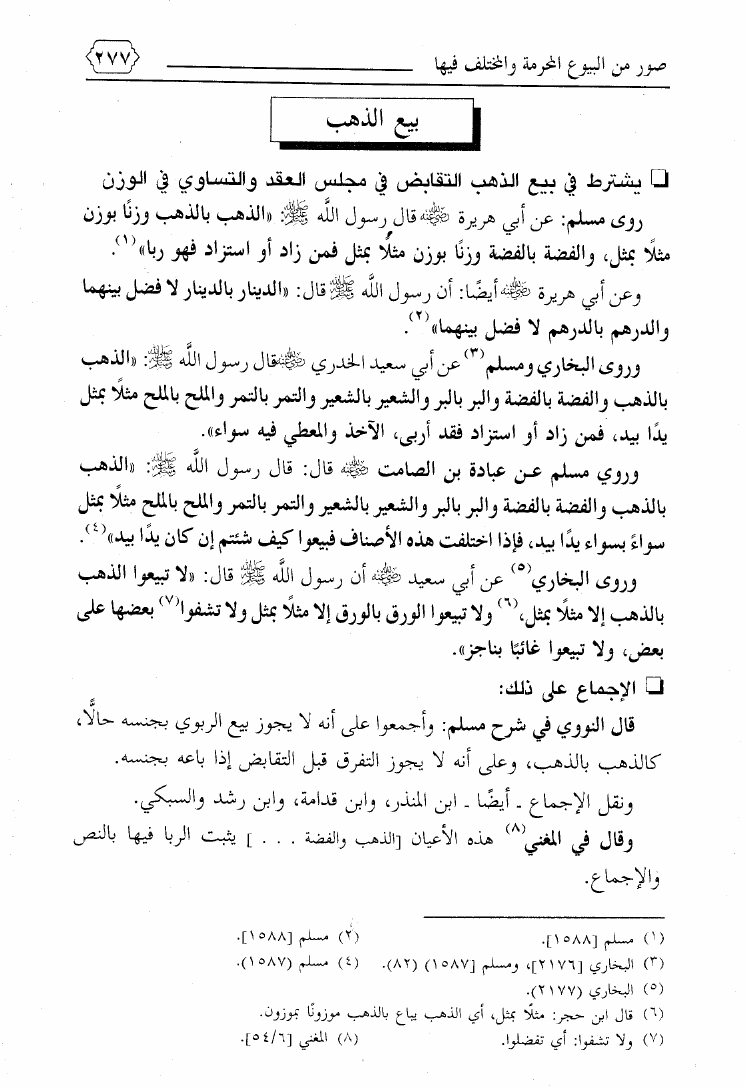 صور من البيوع المحرمة والمختلف فيها ٢٧٧
بيع الذهب
❑ يشترط في بيع الذهب التقابض في مجلس العقد والتساوي في الوزن
روى مسلم: عن أبي هريرة رضي الله عنه قال رسول اللَّه ﷺ: «الذهب بالذهب وزنًا بوزن
مثلًا بمثل، والفضة بالفضة وزنًا بوزن مثلًا بمثل فمن زاد أو استزاد فهو ربا»(١).
وعن أبي هريرة رضي الله عنه أيضًا: أن رسول اللَّه ﷺ قال: «الدينار بالدينار لا فضل بينهما
والدرهم بالدرهم لا فضل بينهما»(٢).
وروى البخاري ومسلم(٣) عن أبي سعيد الخدري رضي الله عنه قال رسول اللَّه ﷺ: «الذهب
بالذهب والفضة بالفضة والبر بالبر والشعير بالشعير والتمر بالتمر والملح بالملح مثلًا بمثل
يدًا بيد، فمن زاد أو استزاد فقد أربى، الآخذ والمعطي فيه سواء».
وروي مسلم عن عبادة بن الصامت رضي الله عنه قال: قال رسول اللَّه ﷺ: «الذهب
بالذهب والفضة بالفضة والبر بالبر والشعير بالشعير والتمر بالتمر والملح بالملح مثلًا بمثل
سواءً بسواء يدًا بيد، فإذا اختلفت هذه الأصناف فبيعوا كيف شئتم إن كان يدًا بيد»(٤).
وروى البخاري(٥) عن أبي سعيد رضي الله عنه أن رسول اللَّه ﷺ قال: «لا تبيعوا الذهب
بالذهب إلا مثلًا بمثل،(٦) ولا تبيعوا الورق بالورق إلا مثلًا بمثل ولا تشفوا(٧) بعضها على
بعض، ولا تبيعوا غائبًا بناجز».
❑ الإجماع على ذلك:
قال النووي في شرح مسلم: وأجمعوا على أنه لا يجوز بيع الربوي بجنسه حالًّا،
كالذهب بالذهب، وعلى أنه لا يجوز التفرق قبل التقابض إذا باعه بجنسه.
ونقل الإجماع ـ أيضًا ـ ابن المنذر، وابن قدامة، وابن رشد والسبكي.
وقال في المغني(٨) هذه الأعيان [الذهب والفضة . . . ] يثبت الربا فيها بالنص
والإجماع.
(١) مسلم [١٥٨٨]. (٢) مسلم [١٥٨٨].
(٣) البخاري [٢١٧٦]، ومسلم [١٥٨٧] (٨٢). (٤) مسلم (١٥٨٧).
(٥) البخاري (٢١٧٧).
(٦) قال ابن حجر: مثلًا بمثل، أي الذهب يباع بالذهب موزونًا بموزون.
(٧) ولا تشفوا: أي تفضلوا. (٨) المغني [٥٤/٦].